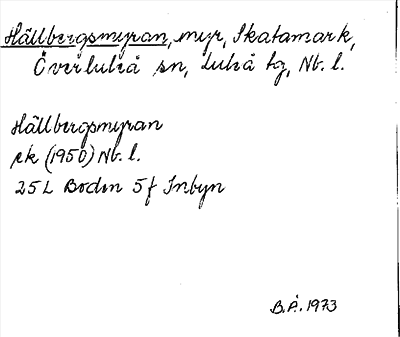 Hällbergsmyran, myr, Skatamark,
Överluleå sn, Luleå tg, Nb. l.
Hällbergsmyran
ek (1950) Nb. l.
25L Boden 5f Inbyn
B.Å. 1973